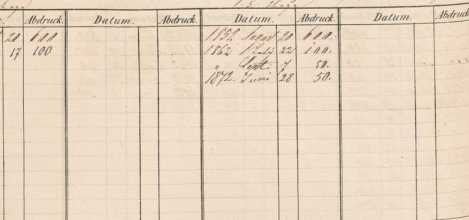 Abdruck. Datum. Abdruck. Datum. Abdruck. Datum. Abdruck
20 600 1852 Sept 20 600.
17 100 1862 22 100.
" Sept. 7 50.
1872. Juni 28 50.